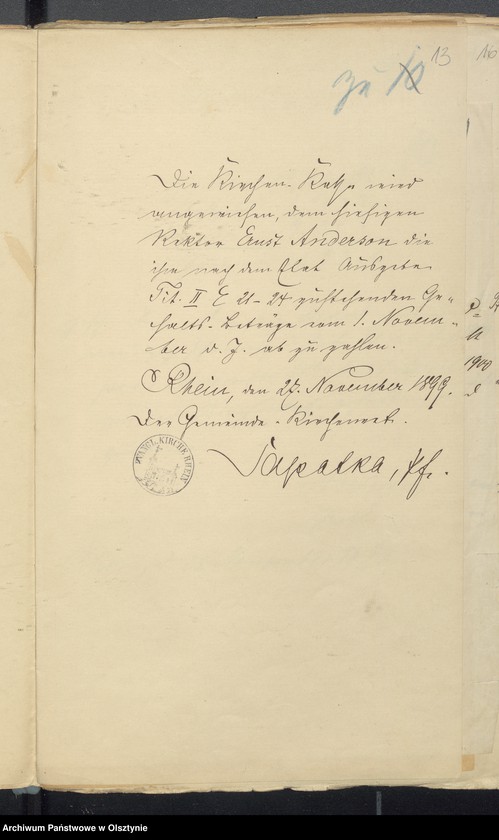 13
16
zu 10
Die Kirchen-Kasse wird
angewiesen, dem hiesigen
Rektor Ernst Anderson die
ihm nach dem Etat Ausgabe
Tit. II E 21-24 zustehenden Ge-
halts-Beträge vom 1. Novem-
ber d. J. ab zu zahlen.
Rhein, den 27. November 1899.
Der Gemeinde-Kirchenrat.
EVANGL. KIRCHE RHEIN
Sapatka, Pf.
1900
Archiwum Państwowe w Olsztynie